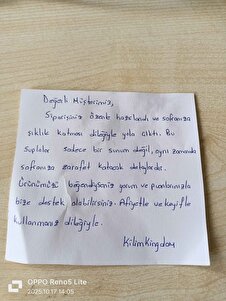 Değerli Müşterimiz,
Siparişiniz özenle hazırlandı ve sofranıza
şıklık katması dileğiyle yola çıktı. Bu
suplalar sadece bir sunum değil, aynı zamanda
sofranıza zarafet katacak detaylardır.
Ürünümüzü beğendiyseniz yorum ve puanlarınızla
bize destek olabilirsiniz. Afiyetle ve keyifle
kullanmanız dileğiyle.
Kilimkingdom
OPPO Reno5 Lite
2025.10.17 14:05